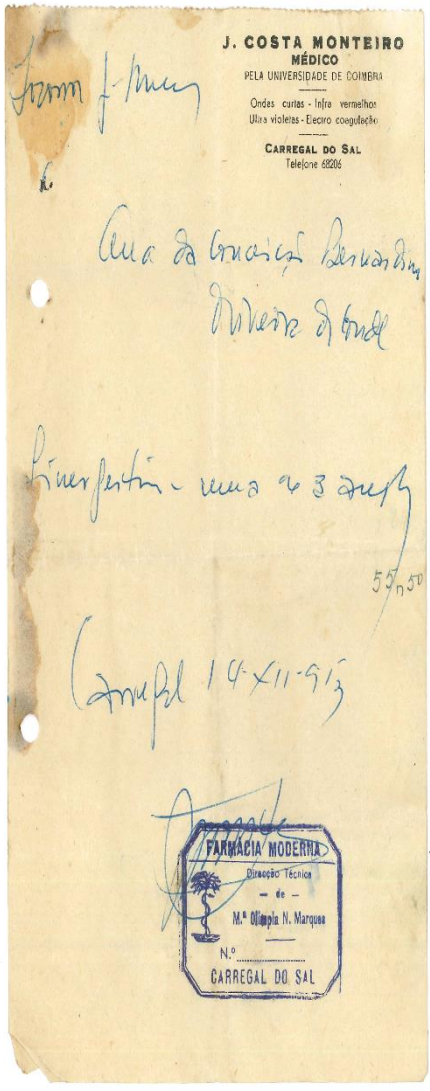 J. COSTA MONTEIRO
MÉDICO
PELA UNIVERSIDADE DE COIMBRA
Ondas curtas - Infra vermelhos
Ultra violetas - Electro coagulação
CARREGAL DO SAL
Telefone 68206
Ana da Conceição Bernardino
Oliveira do Conde
uma de 3
55$50
Carregal 14-XII-953
FARMÁCIA MODERNA
Direcção Técnica
— de —
M.ª Olímpia N. Marques
N.º
CARREGAL DO SAL